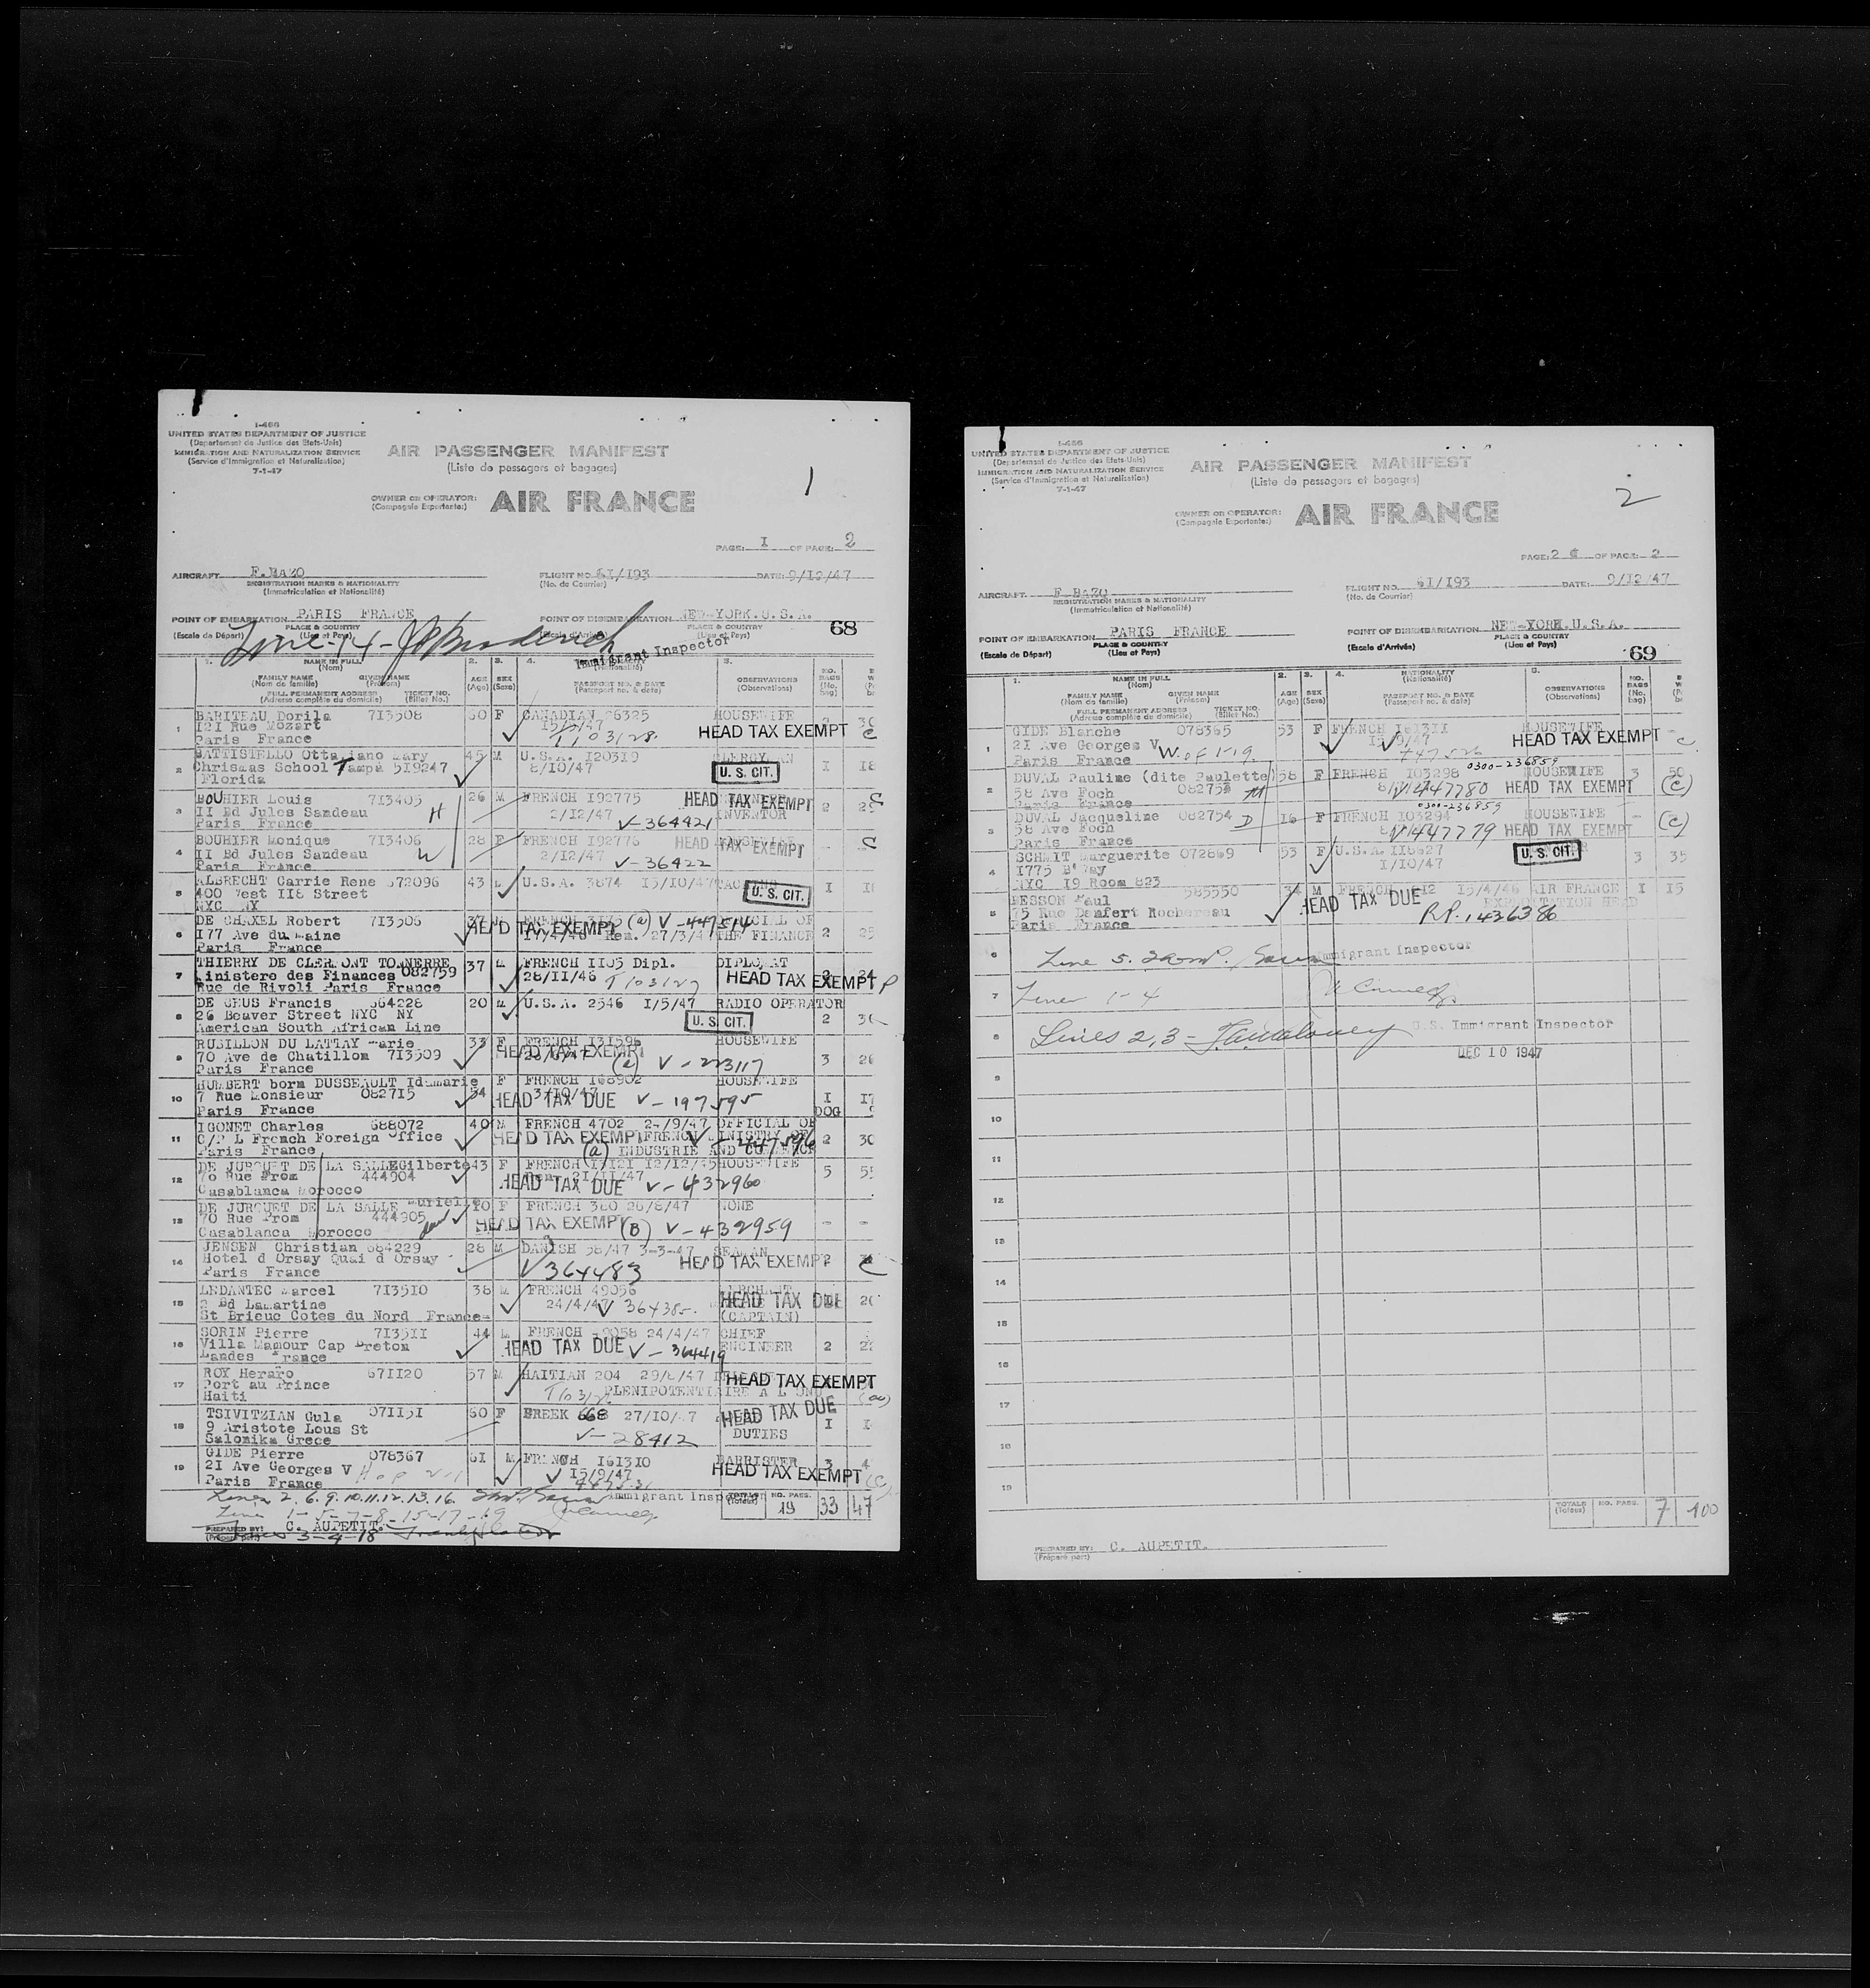 I-466
UNITED STATES DEPARTMENT OF JUSTICE
(Departement de Justice des Etats-Unis)
IMMIGRATION AND NATURALIZATION SERVICE
(Service d'Immigration et Naturalisation)
7-1-47
AIR PASSENGER MANIFEST
(Liste de passagers et bagages)
1
OWNER OR OPERATOR: AIR FRANCE
(Compagnie Exportante:)
PAGE: I OF PAGE: 2
AIRCRAFT F.BAZO FLIGHT NO. 61/I93 DATE: 9/12/47
REGISTRATION MARKS & NATIONALITY (No. de Courrier)
(Immatriculation et Nationalité)
POINT OF EMBARKATION PARIS FRANCE POINT OF DISEMBARKATION NEW-YORK.U.S.A. 68
(Escale de Départ) PLACE & COUNTRY (Escale d'Arrivée) PLACE & COUNTRY
(Lieu et Pays) (Lieu et Pays)
Line-14-
Immigrant Inspector
1. NAME IN FULL 2. 3. 4. 5. NO.
(Nom) BAGS
FAMILY NAME GIVEN NAME AGE SEX PASSPORT NO. & DATE OBSERVATIONS (No.
(Nom de famille) (Prénom) (Age) (Sexe) (Passeport no. & date) (Observations) bag)
FULL PERMANENT ADDRESS TICKET NO.
(Adresse complète du domicile) (Billet No.)
1 BARITEAU Dorila 7I3508 60 F CANADIAN 26325 HOUSEWIFE
I2I Rue Mozart HEAD TAX EXEMPT
Paris France T103128
2 BATTISTELLO Ottaviano Mary 45 M U.S.A. I203I9 CLERGYMAN
Chrismas School Tampa 5I9247 8/I0/47 U. S. CIT. I I8
Florida
3 BOUHIER Louis 7I3405 26 M FRENCH I92775 HEAD TAX EXEMPT 2
II Bd Jules Sandeau H 2/I2/47 INVENTOR
Paris France V-364421
4 BOUHIER Monique 7I3406 28 F FRENCH I92776 HEAD TAX EXEMPT -
II Bd Jules Sandeau W 2/I2/47
Paris France V-36422
5 ALBRECHT Carrie Rene 572096 43 U.S.A. 3874 I5/I0/47 U. S. CIT. I
400 West II8 Street
NYC NY
6 DE CHAXEL Robert 7I3506 37 FRENCH 3I75 (a) V-447514 OFFICIAL OF
I77 Ave du Maine HEAD TAX EXEMPT Ren. 27/3/4 THE FINANCE 2 25
Paris France
7 THIERRY DE CLERMONT TONNERRE 37 M FRENCH II05 Dipl. DIPLOMAT
Ministere des Finances 082759 28/II/46 T103127 HEAD TAX EXEMPT 24
Rue de Rivoli Paris France
8 DE GEUS Francis 564228 20 M U.S.A. 2546 I/5/47 RADIO OPERATOR
26 Beaver Street NYC NY U. S. CIT. 2
American South African Line
9 RUBILLON DU LATTAY Marie 33 F FRENCH I3I596 HOUSEWIFE
70 Ave de Chatillon 7I3509 HEAD TAX EXEMPT 3 26
Paris France (a) V-223117
10 HUMBERT born DUSSEAULT Idamarie F FRENCH I68902 HOUSEWIFE
7 Rue Monsieur 0827I5 54 3/I0/47 I I7
Paris France HEAD TAX DUE V-197595 DOG
11 IGONET Charles 688072 40 M FRENCH 4702 24/9/47 OFFICIAL OF
C/O L French Foreign Office HEAD TAX EXEMPT FRENCH MINISTRY OF 2 30
Paris France (a) INDUSTRIE AND COMMERCE
12 DE JURQUET DE LA SALLE Gilberte 43 F FRENCH I7I2I I2/I2/45 HOUSEWIFE 5
70 Rue Prom 444904 Ren. 2I/II/47
Casablanca Morocco HEAD TAX DUE V-432960
13 DE JURQUET DE LA SALLE Murielle F FRENCH 380 26/8/47 NONE
70 Rue Prom 444905 HEAD TAX EXEMPT (B) V-432959 - -
Casablanca Morocco
14 JENSEN Christian 684229 28 M DANISH 58/47 3-3-47 SEAMAN
Hotel d Orsay Quai d Orsay HEAD TAX EXEMPT 2
Paris France V364483
15 LEDANTEC Marcel 7I35I0 38 M FRENCH 49056
2 Bd Lamartine 24/4/47 V 364385. HEAD TAX DUE
St Brieuc Cotes du Nord France (CAPTAIN)
16 SORIN Pierre 7I35II 44 M FRENCH 49058 24/4/47 CHIEF
Villa Mamour Cap Breton HEAD TAX DUE V-364419 ENGINEER 2
Landes France
17 ROY Heraro 67II20 57 M HAITIAN 204
Port au Prince HEAD TAX EXEMPT
Haiti PLENIPOTENTIAIRE A L ONU
18 TSIVITZIAN Gula 07II5I 60 F GREEK 668 27/I0/47 HEAD TAX DUE
9 Aristote Lous St DUTIES I
Salonika Grece V-28412
19 GIDE Pierre 078367 61 M FRENCH I6I3I0 BARRISTER 3
21 Ave Georges V I5/9/47 HEAD TAX EXEMPT (C)
Paris France
Lines 2.6.9.10.11.12.13.16. Immigrant Inspector TOTALS NO. PASS. 19 33 47
Line 1-5-7-8-15-17-19
PREPARED BY: C. AUPETIT.
(Préparé par) 3-4-18
I-466
UNITED STATES DEPARTMENT OF JUSTICE
(Departement de Justice des Etats-Unis)
IMMIGRATION AND NATURALIZATION SERVICE
(Service d'Immigration et Naturalisation)
7-1-47
AIR PASSENGER MANIFEST
(Liste de passagers et bagages)
2
OWNER OR OPERATOR: AIR FRANCE
(Compagnie Exportante:)
PAGE: 2 OF PAGE: 2
AIRCRAFT F BAZO FLIGHT NO. 61/I93 DATE: 9/12/47
REGISTRATION MARKS & NATIONALITY (No. de Courrier)
(Immatriculation et Nationalité)
POINT OF EMBARKATION PARIS FRANCE POINT OF DISEMBARKATION NEW-YORK.U.S.A.
(Escale de Départ) PLACE & COUNTRY (Escale d'Arrivée) PLACE & COUNTRY
(Lieu et Pays) (Lieu et Pays) 69
1. NAME IN FULL 2. 3. 4. NATIONALITY 5. NO.
(Nom) (Nationalité) BAGS
FAMILY NAME GIVEN NAME AGE SEX PASSPORT NO. & DATE OBSERVATIONS (No.
(Nom de famille) (Prénom) (Age) (Sexe) (Passeport no. & date) (Observations) bag)
FULL PERMANENT ADDRESS TICKET NO.
(Adresse complète du domicile) (Billet No.)
1 GIDE Blanche 078365 53 F FRENCH I6I3II HOUSEWIFE
2I Ave Georges V W. of 1-19. HEAD TAX EXEMPT
Paris France 0300-236859
2 DUVAL Pauline (dite Paulette) 58 F FRENCH I03298 HOUSEWIFE 3 50
58 Ave Foch M V447780 HEAD TAX EXEMPT (C)
Paris France 0300-236859
3 DUVAL Jacqueline 082754 D 16 F FRENCH I03294 HOUSEWIFE -
58 Ave Foch V447779 HEAD TAX EXEMPT (C)
Paris France
4 SCHMIT Marguerite 072869 53 F U.S.A. II8627 U. S. CIT. 3 35
I775 B' Way I/I0/47
NYC I9 Room 823
5 BESSON Paul 585550 34 M FRENCH I5/4/46 AIR FRANCE I I5
75 Rue Denfert Rochereau HEAD TAX DUE EXPLOITATION HEAD
Paris France R.P. 1436386
6 Line 5. Immigrant Inspector
7 Lines 1-4
8 Lines 2,3 - U.S. Immigrant Inspector
DEC 10 1947
9
10
11
12
13
14
15
16
17
18
19
TOTALS NO. PASS. 7 100
(Totaux)
PREPARED BY: C. AUPETIT.
(Préparé par)